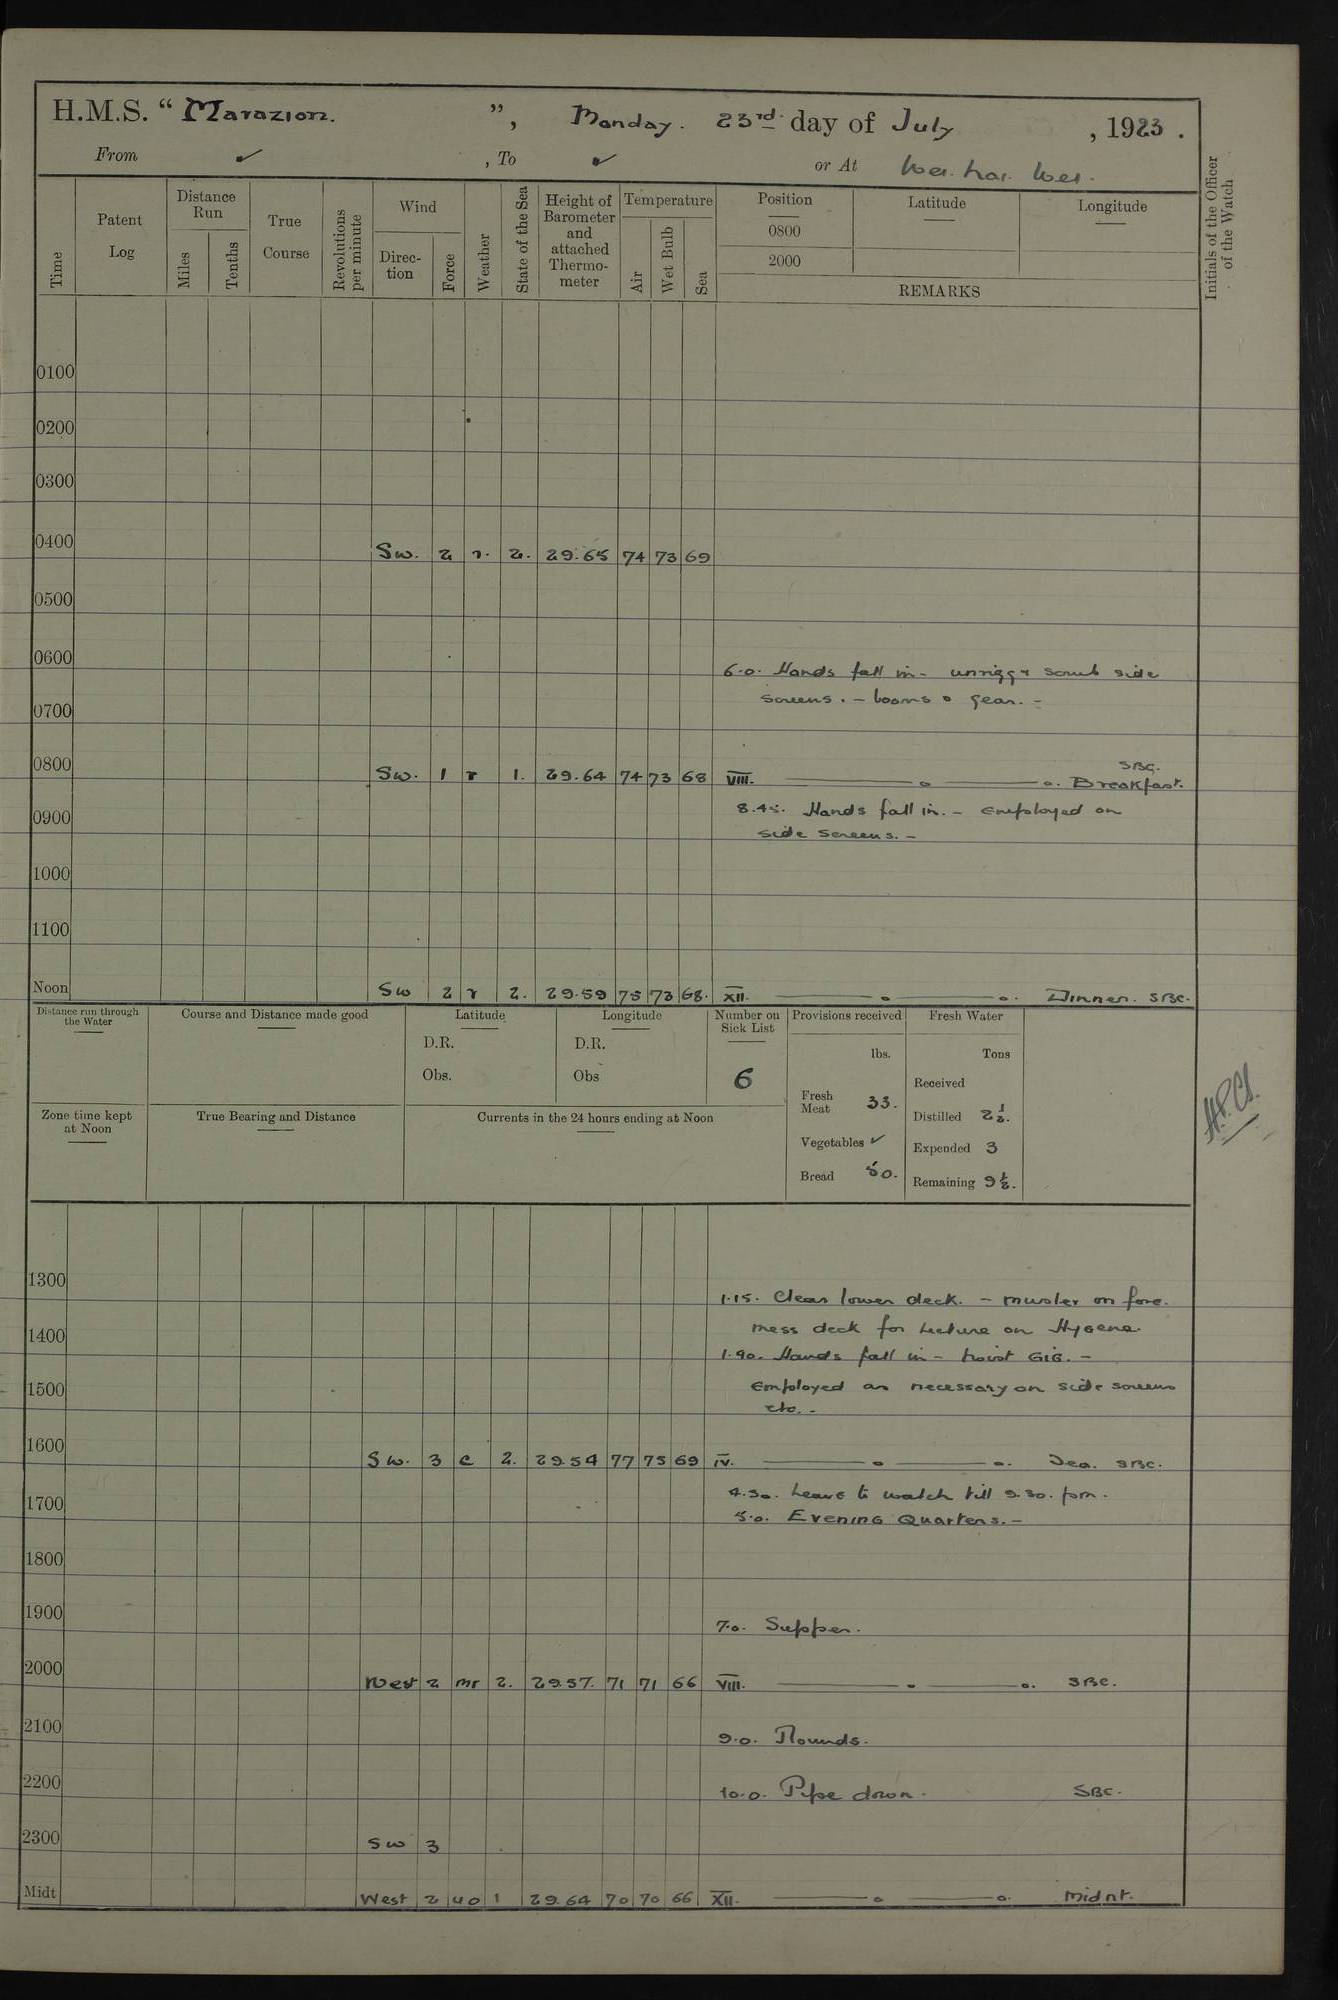 H.M.S. “ Marazion. ”, Monday. 23rd day of July , 1923 .
From ✓ , To ✓ or At Wei. hai. Wei.
Time
Patent Log
Distance Run
Miles
Tenths
True Course
Revolutions per minute
Wind
Direc-tion
Force
Weather
State of the Sea
Height of Barometer and attached Thermo-meter
Temperature
Air
Wet Bulb
Sea
Position
0800
2000
Latitude
Longitude
REMARKS
Initials of the Officer of the Watch
0100
0200
0300
0400 Sw. 2 r. 2. 29.65 74 73 69
0500
0600 6.0. Hands fall in - unrigg & scrub side
screens. - booms & gear. -
0700
0800 Sw. 1 r 1. 29.64 74 73 68 VIII. SBC. Breakfast.
8.45. Hands fall in. - Employed on
0900
side screens. -
1000
1100
Noon Sw 2 r 2. 29.59 75 73 68. XII. Dinner. SBC.
Distance run through the Water
Course and Distance made good
Latitude
D.R.
Obs.
Longitude
D.R.
Obs
Number on Sick List
6
Provisions received
lbs.
Fresh Meat 33.
Vegetables ✓
Bread 50.
Fresh Water
Tons
Received
Distilled 2 1/2.
Expended 3
Remaining 9 1/2.
Zone time kept at Noon
True Bearing and Distance
Currents in the 24 hours ending at Noon
1300 1.15. Clear lower deck. - muster on fore.
mess deck for Lecture on Hygene.
1400
1.40. Hands fall in - hoist GIG. -
1500 Employed as necessary on side screens
etc. -
1600 Sw. 3 c 2. 29.54 77 75 69 IV. Tea. SBC.
4.30. Leave to watch till 9.30. pm.
1700
5.0. Evening Quarters. -
1800
1900 7.0. Supper.
2000 West 2 mr 2. 29.57. 71 71 66 VIII. SBC.
2100 9.0. Rounds.
2200 10.0. Pipe down. SBC.
2300 Sw 3
Midt West 2 uo 1 29.64 70 70 66 XII. Midnt.